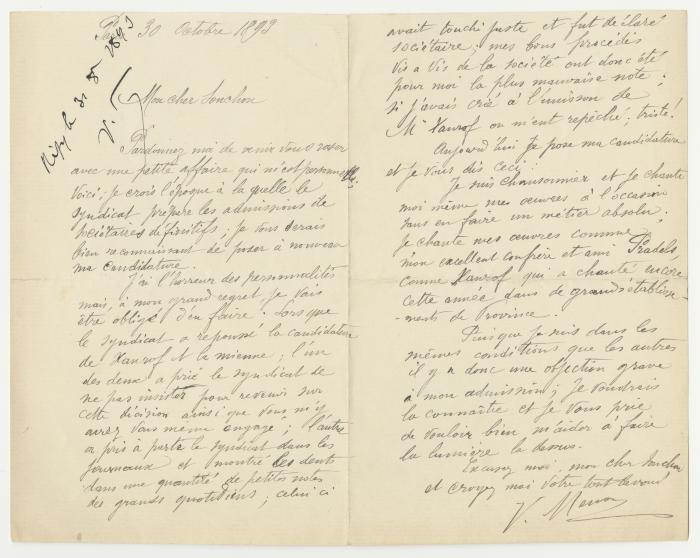 Paris 30 Octobre 1893
Rép. le 31 8bre 1893
V.
Mon cher Souchon
Pardonnez moi de venir vous raser
avec une petite affaire qui m'est personnelle.
Voici; je crois l'époque à la quelle le
syndicat prépare les admissions de
sociétaires définitifs; je vous serais
bien reconnaissant de poser à nouveau
ma candidature.
J'ai l'horreur des personnalités
mais, à mon grand regret je vais
être obligé d'en faire. Lorsque
le syndicat a repoussé la candidature
de Xanrof et la mienne; l'un
des deux a prié le syndicat de
ne pas insister pour revenir sur
cette décision ainsi que vous m'y
aviez vous même engagé; l'autre
a pris à partie le syndicat dans les
journeaux et montré les dents
dans une quantité de petites notes
des grands quotidiens; celui ci
avait touché juste et fut déclaré
sociétaire; mes bons procédés
vis a vis de la société ont donc été
pour moi la plus mauvaise note!
Si j'avais crié à l'unisson de
Mr Xanrof on m'eut repêché; triste!
Aujourd'hui je pose ma candidature
et je vous dis ceci:
Je suis chansonnier et je chante
moi même mes œuvres à l'occasion
sans en faire un métier absolu.
Je chante mes œuvres comme
mon excellent confrère et ami Pradels
comme Xanrof qui a chanté encore
cette année dans de grands établisse
-ments de Province.
Puisque je suis dans les
mêmes conditions que les autres
il y a donc une objection grave
à mon admission; je voudrais
la connaître et je vous prie
de vouloir bien m'aider à faire
la lumière la dessus.
Excusez moi, mon cher Souchon
et croyez moi votre tout dévoué
V. Meusy